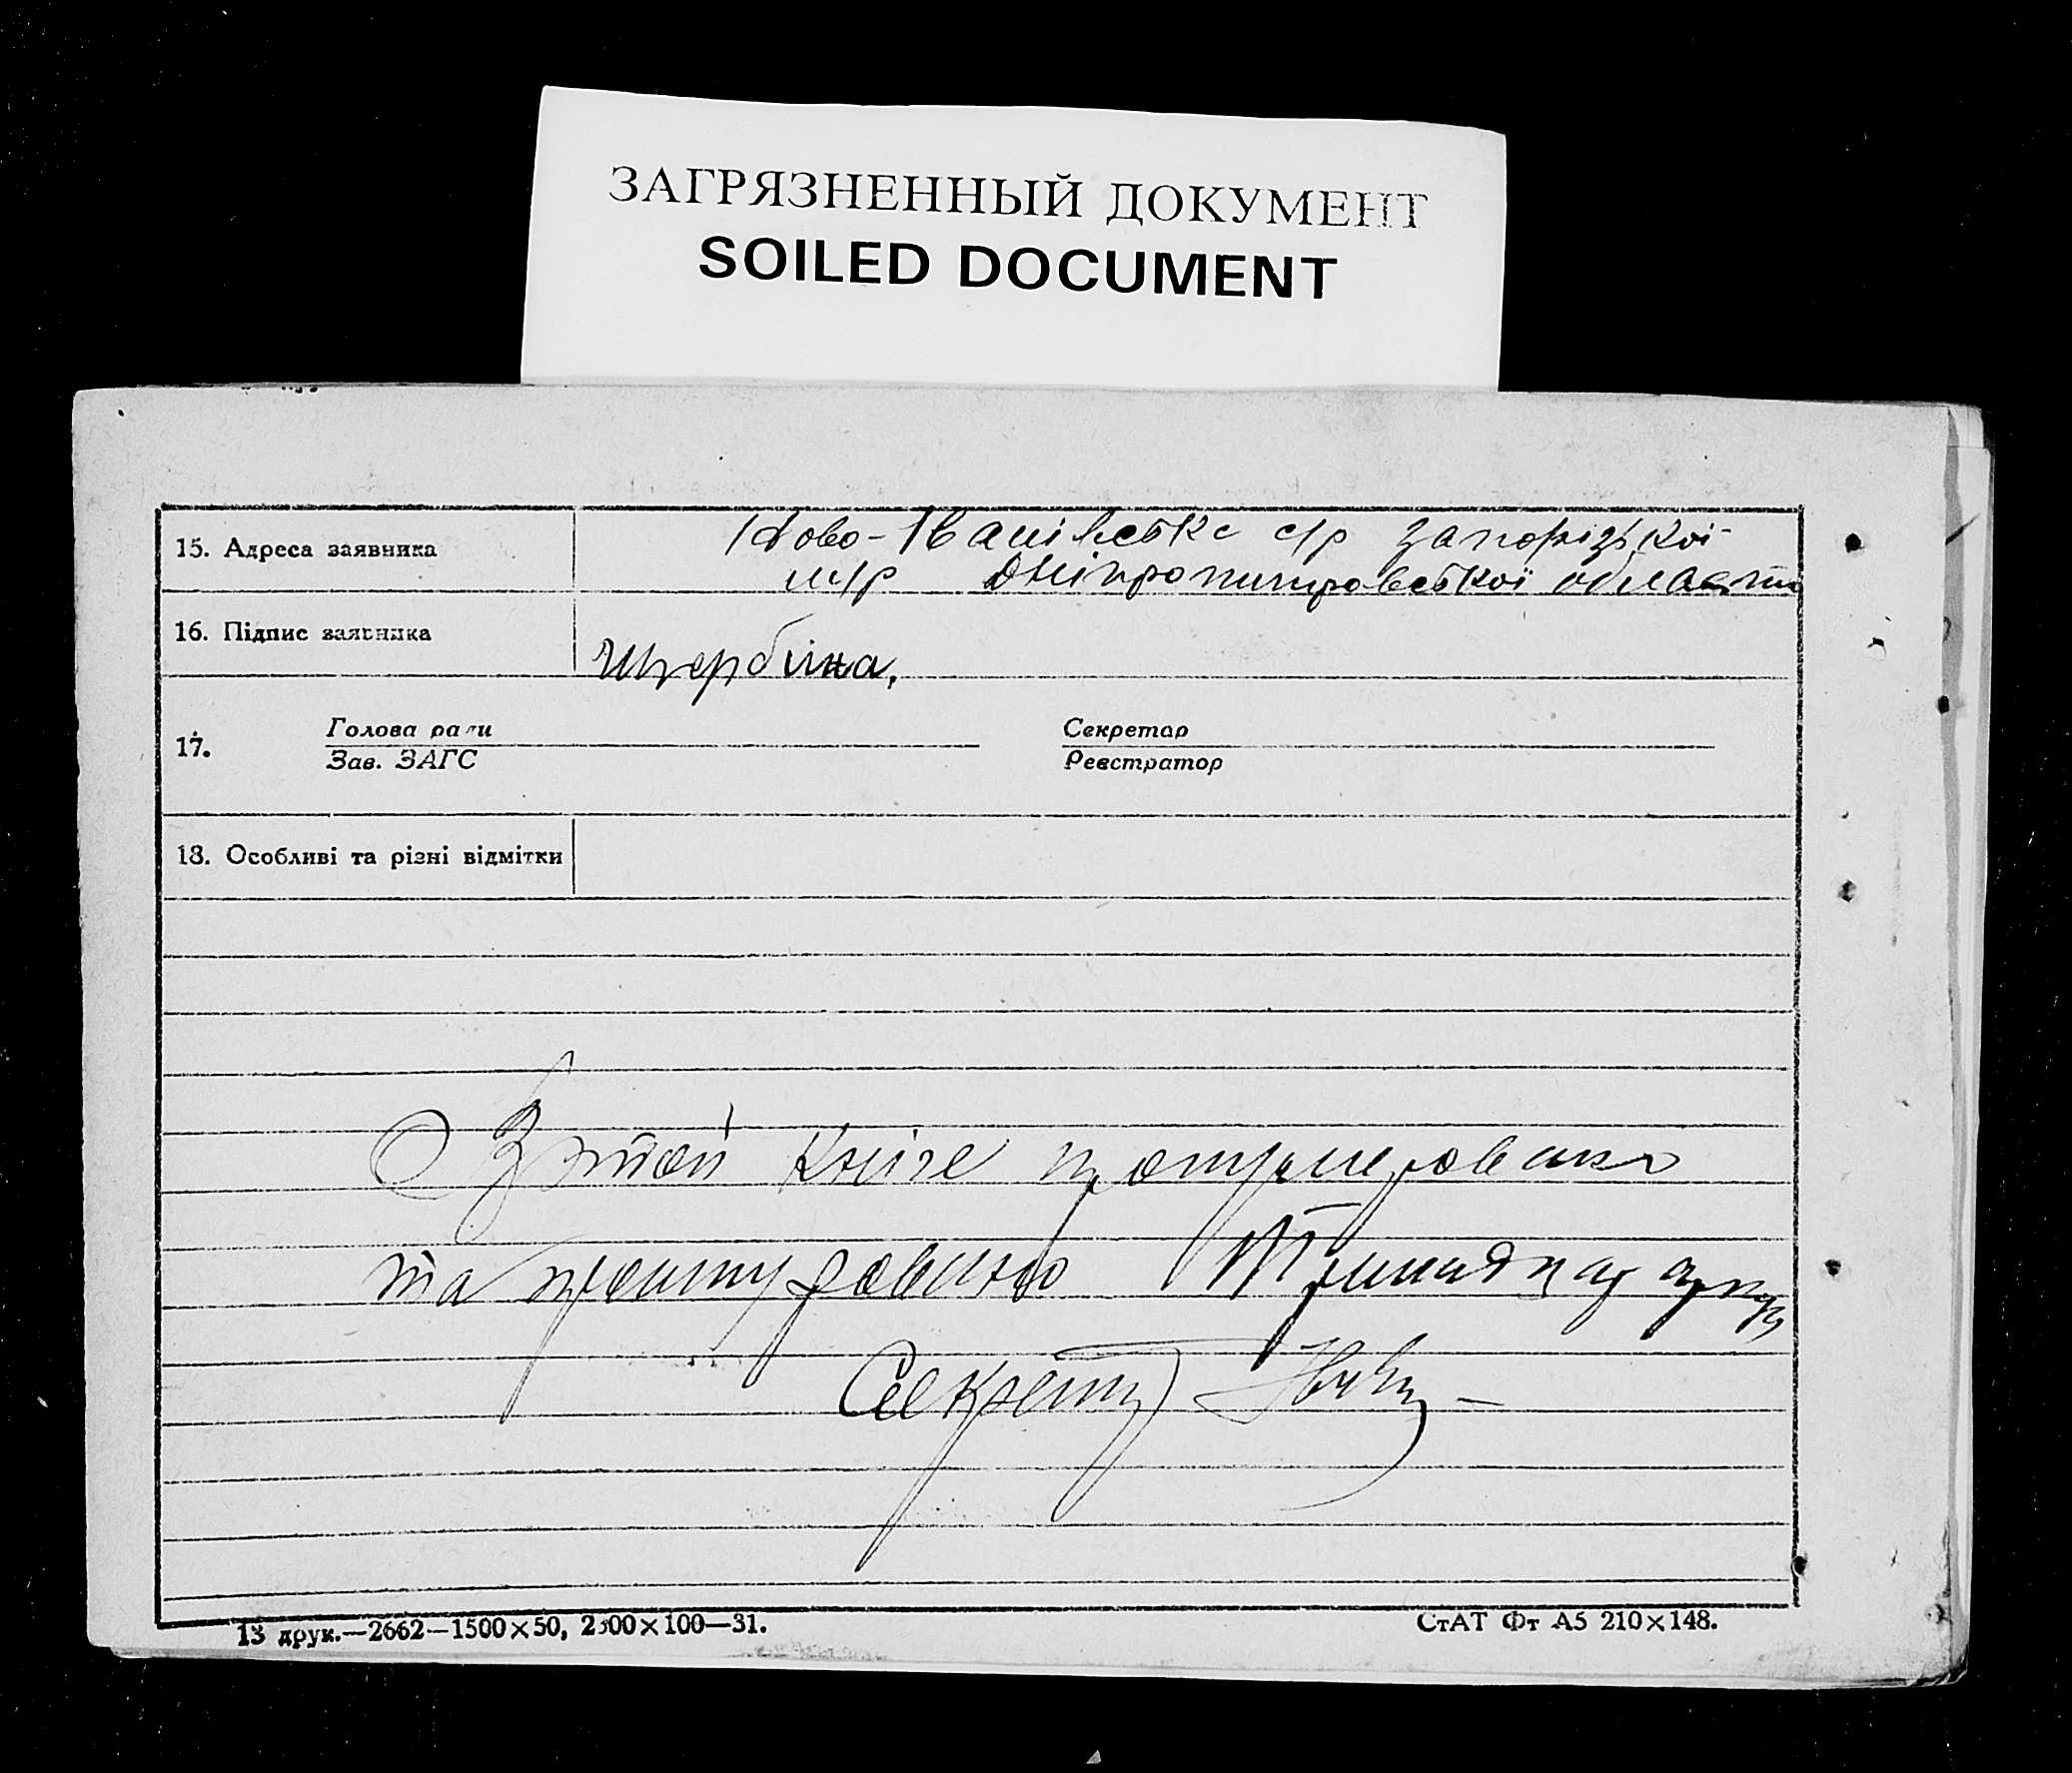 ЗАГРЯЗНЕННЫЙ ДОКУМЕНТ
SOILED DOCUMENT
15. Адреса заявника
Ново-Іванівське с/р Запорізької
м/р Дніпропитровської области
16. Підпис заявника
Щербина.
17. Голова ради Секретар
Зав. ЗАГС Реєстратор
18. Особливі та різні відмітки
В этой Кніге пронумеровано
та прошнуровано
Секретар
13 друк.—2662—1500×50, 2300×100—31. СтАТ Фт А5 210×148.